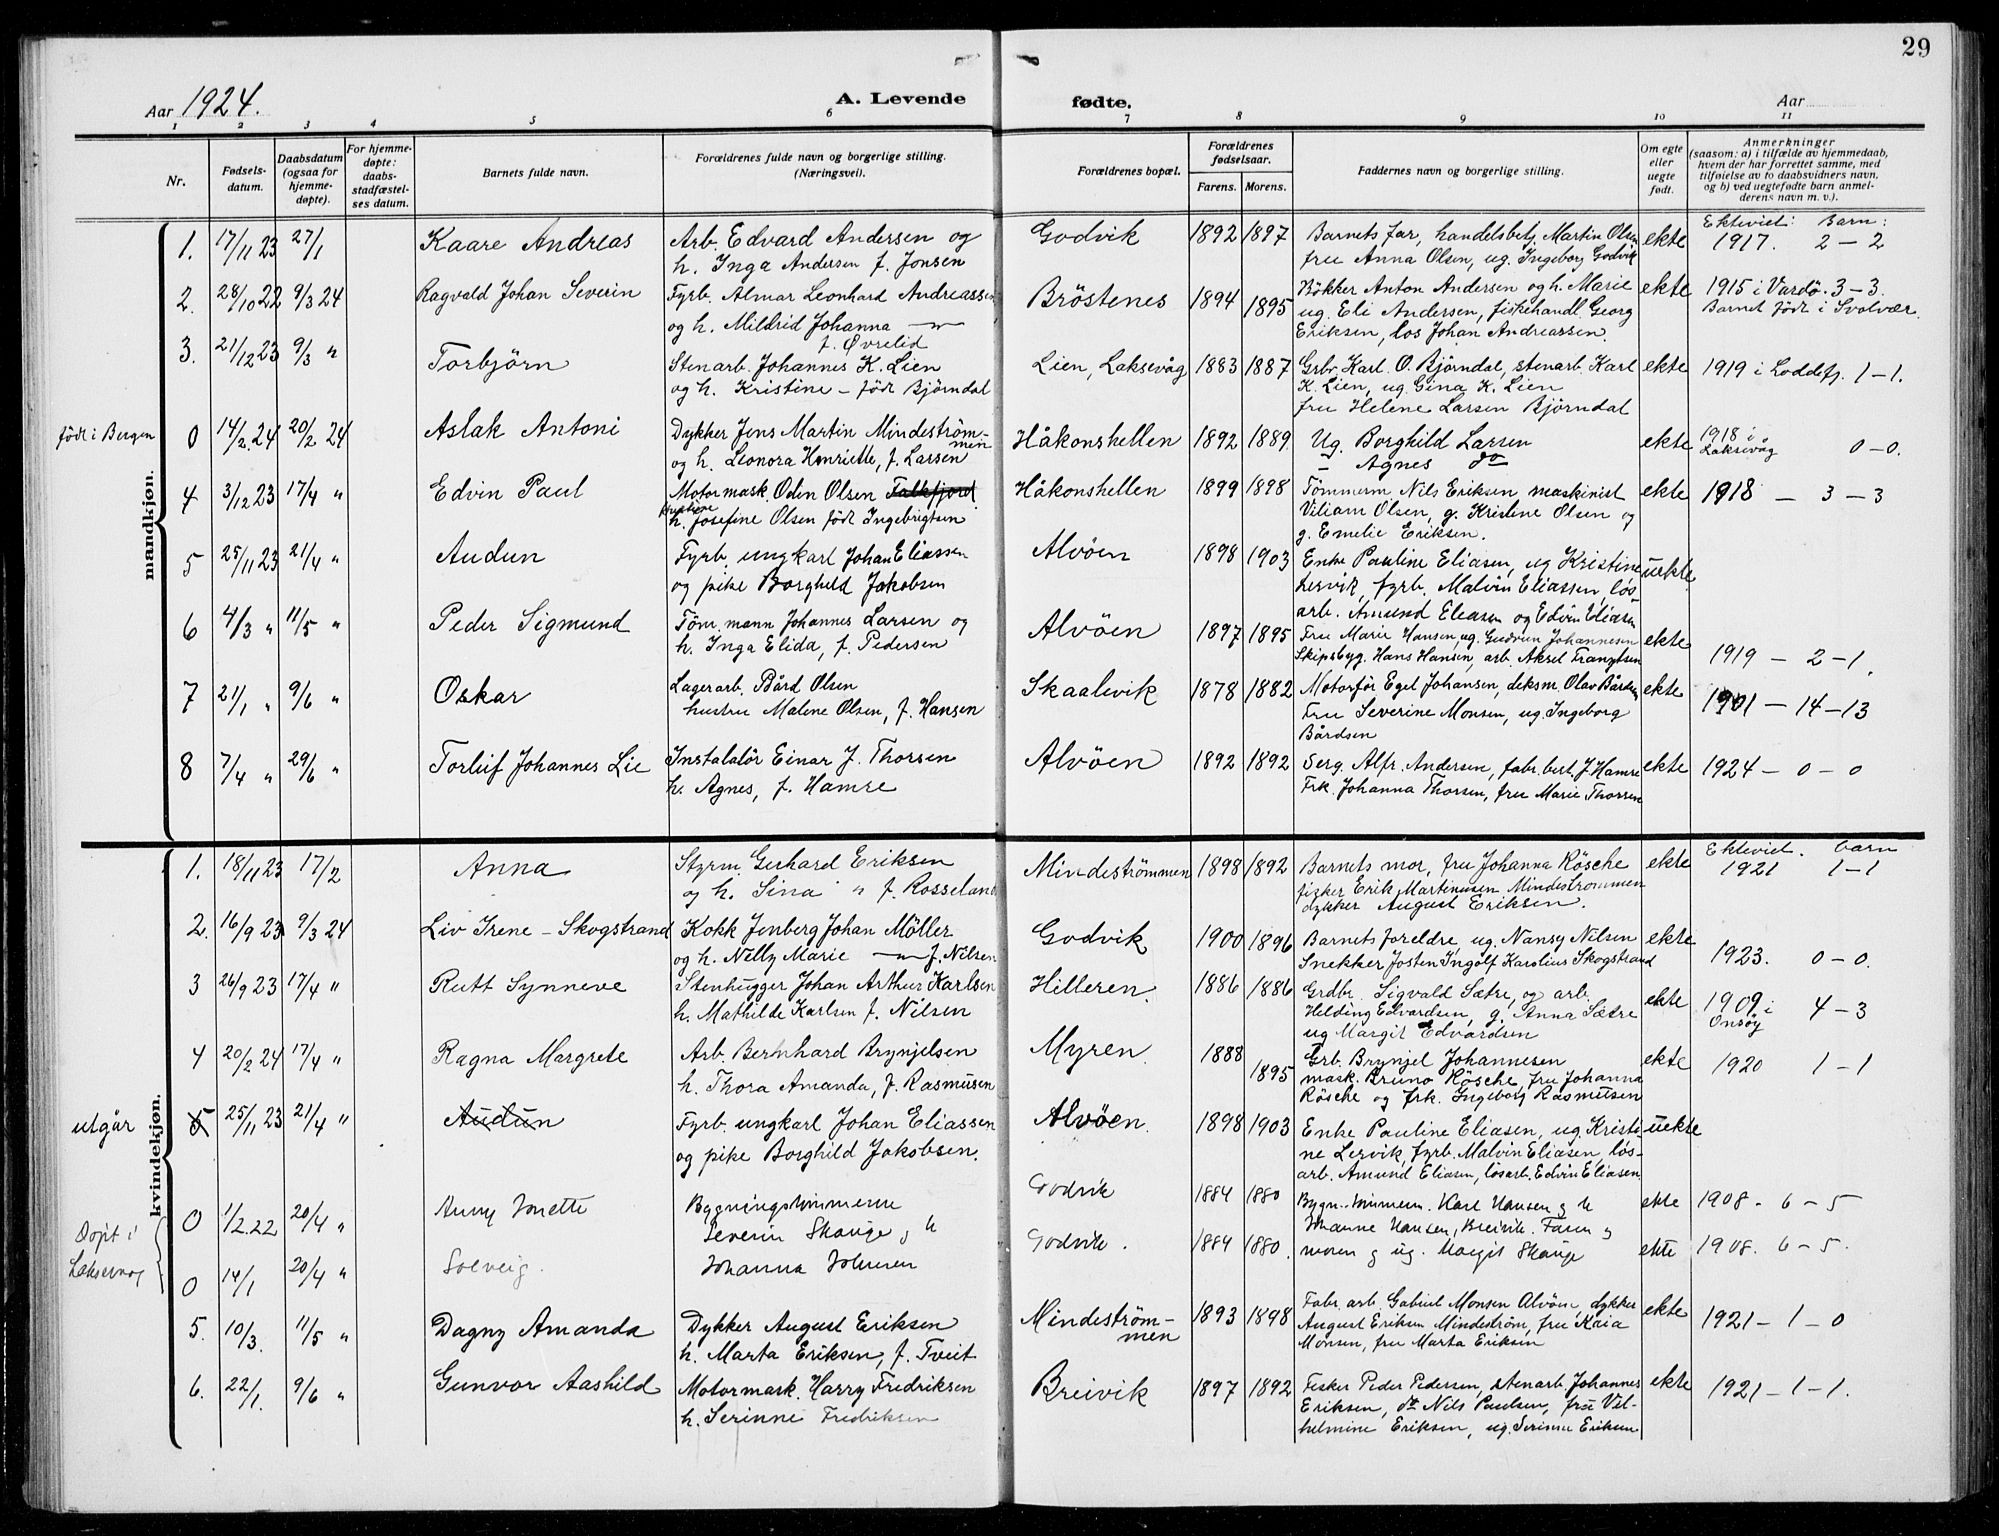 29
Aar 1924.
A. Levende fødte.
Aar
1 2 3 4 5 6 7 8 9 10 11
Nr.
Fødsels-
datum.
Daabsdatum
(ogsaa for
hjemme-
døpte).
For hjemme-
døpte:
daabs-
stadfæstel-
ses datum.
Barnets fulde navn.
Forældrenes fulde navn og borgerlige stilling.
(Næringsvei).
Forældrenes bopæl.
Forældrenes
fødselsaar.
Farens. Morens.
Faddernes navn og borgerlige stilling.
Om egte
eller
uegte
født.
Anmerkninger
(saasom: a) i tilfælde av hjemmedaab,
hvem der har forrettet samme, med
tilføielse av to daabsvidners navn,
og b) ved uegtefødte barn anmel-
derens navn m. v.).
mandkjøn.
Ekteviet: Barn:
1. 17/11 23 27/1 Kaare Andreas Arb. Edvard Andersen og Godvik 1892 1897 Barnets far, handelsbetj. Martin Olsen ekte 1917. 2 – 2
h. Inga Andersen f. Jonsen fru Anna Olsen, ug. Ingeborg Godvik
2. 28/10 22 9/3 24 Ragvald Johan Severin Fyrb. Almar Leonhard Andreassen Bröstenes 1894 1895 Bökker Anton Andersen og h. Marie ekte 1915 i Vardö. 3 – 3.
og h. Mildrid Johanna — ug. Eli Andersen, fiskehandl. Georg Barnet födt i Svolvær.
f. Øvrelid Eriksen, los Johan Andreassen.
3. 21/12 23 9/3 " Torbjörn Stenarb. Johannes K. Lien Lien, Laksevåg 1883 1887 Grbr. Karl O. Björndal, stenarb. Karl ekte 1919 i Loddefj. 1 – 1.
og h. Kristine – födt Björndal K. Lien, ug. Gina K. Lien
fru Helene Larsen Björndal
födt i Bergen 0 14/2 24 20/2 24 Aslak Antoni Dykker Jens Martin Mindeström- Håkonshellen 1892 1889 Ug. Borghild Larsen ekte 1918 i 0 – 0.
men
og h. Leonora Henriette, f. Larsen – Agnes do Laksevåg
4 3/12 23 17/4 " Edvin Paul Motormask. Oden Olsen Falkfjord Håkonshellen 1899 1898 Tömmerm Nils Eriksen maskinist ekte 1918 – 3 – 3
h. Josefine Olsen födt Ingebrigtsen Viliam Olsen, g. Kristine Olsen og
g. Emelie Eriksen.
5 25/11 23 21/4 " Audun Fyrb. ungkarl Johan Eliassen Alvöen 1898 1903 Enke Pauline Eliasen, ug Kristine uekte
og pike Borghild Jakobsen Lervik, fyrb. Malvin Eliassen, lös-
arb. Amund Eliasen og Edvin Eliasen
6 4/3 " 11/5 " Peder Sigmund Töm. mann Johannes Larsen og Alvöen 1897 1895 Fru Marie Hansen, ug. Gudrun Johannesen ekte 1919 – 2 – 1.
h. Inga Elida, f. Pedersen Skipsbyg. Hans Hansen, arb. Aksel Frantzen
7 21/1 " 9/6 " Oskar Lagerarb. Bård Olsen Skaalevik 1878 1882 Motorför Egil Johansen, deksm. Olav Bårdsen ekte 1901 – 14 – 13
hustru Malene Olsen, f. Hansen Fru Severine Monsen, ug. Ingeborg
Bårdsen
8 7/4 " 29/6 " Torleif Johannes Lie Instalatör Einar J. Thorsen Alvöen 1892 1892 Serg. Alfr. Andersen, fabr. best. J. Hamre ekte 1924 – 0 – 0
h. Agnes, f. Hamre Frk. Johanna Thorsen, fru Marie Thorsen
kvindekjøn.
Ektevied. barn
1. 18/11 23 17/2 Anna Styrm Gerhard Eriksen Mindeströmmen 1898 1892 Barnets mor, fru Johanna Rösche ekte 1921 1 – 1
og h. Sina " f. Rosseland fisker Erik Martinusen Mindeströmmen
dykker August Eriksen.
2. 16/9 23 9/3 24 Liv Irene – Skogstrand Kokk Jenberg Johan Möller Godvik 1900 1896 Barnets foreldre, ug. Nansy Nilsen ekte 1923. 0 – 0.
og h. Nelly Marie — f. Nilsen Snekker Josten Ingolf Karolius Skogstrand
3 26/9 23 17/4 " Rutt Synneve Stenhugger Johan Arthur Karlsen Hilleren. 1886 1886 Grdbr. Sigvald Sætre, og arb. ekte 1909 i 4 – 3
h. Mathilde Karlsen f. Nilsen Helding Edvardsen, g. Anna Sætre Onsöy
ug Margit Edvardsen
4 20/2 24 17/4 " Ragna Margrete Arb. Bernhard Brynjelsen Myren. 1888 1895 Grb. Brynjel Johannesen ekte 1920 1 – 1
h. Thora Amanda, f. Rasmusen mask. Bruno Rösche, fru Johanna
Rösche og frk. Ingeborg Rasmusen
utgår 5 25/11 23 21/4 " Audun Fyrb. ungkarl Johan Eliassen Alvöen. 1898 1903 Enke Pauline Eliasen, ug. Kristi- uekte
og pike Borghild Jakobsen. ne Lervik, fyrb. Malvin Eliasen, lös-
arb. Amund Eliasen, lösarb. Edvin Eliasen
Döpt i Laksevaag 0 1/2 22 20/4 " Anny Jonette Bygningstömmerm Godvik 1884 1880 Bygn. tömmerm. Karl Hansen og h ekte 1908 – 6 – 5
Severin Skauge og h Johanne Hansen, Breivik. Faren og
0 14/1 20/4 " Solveig. Johanna Johnsen Godvik. 1884 1880. moren og ug. Margit Skauge ekte 1908. 6 – 5.
5. 10/3. 11/5 " Dagny Amanda Dykker August Eriksen Mindeström- 1893 1898 Fabr. arb. Gabriel Monsen Alvöen, dykker ekte 1921 – 1 – 0
h. Marta Eriksen, f. Tveit men August Eriksen Mindeström, fru Kaia
Monsen, fru Marta Eriksen
6. 22/1. 9/6 " Gunvor Aashild Motormask. Harry Fredriksen Breivik 1897 1892 Fisker Peder Pedersen, stenarb. Johannes ekte 1921 – 1 – 1.
h. Serinne Fredriksen Eriksen, do Nils Paulsen, fru Vil-
helmine Eriksen, ug. Serinne Eriksen